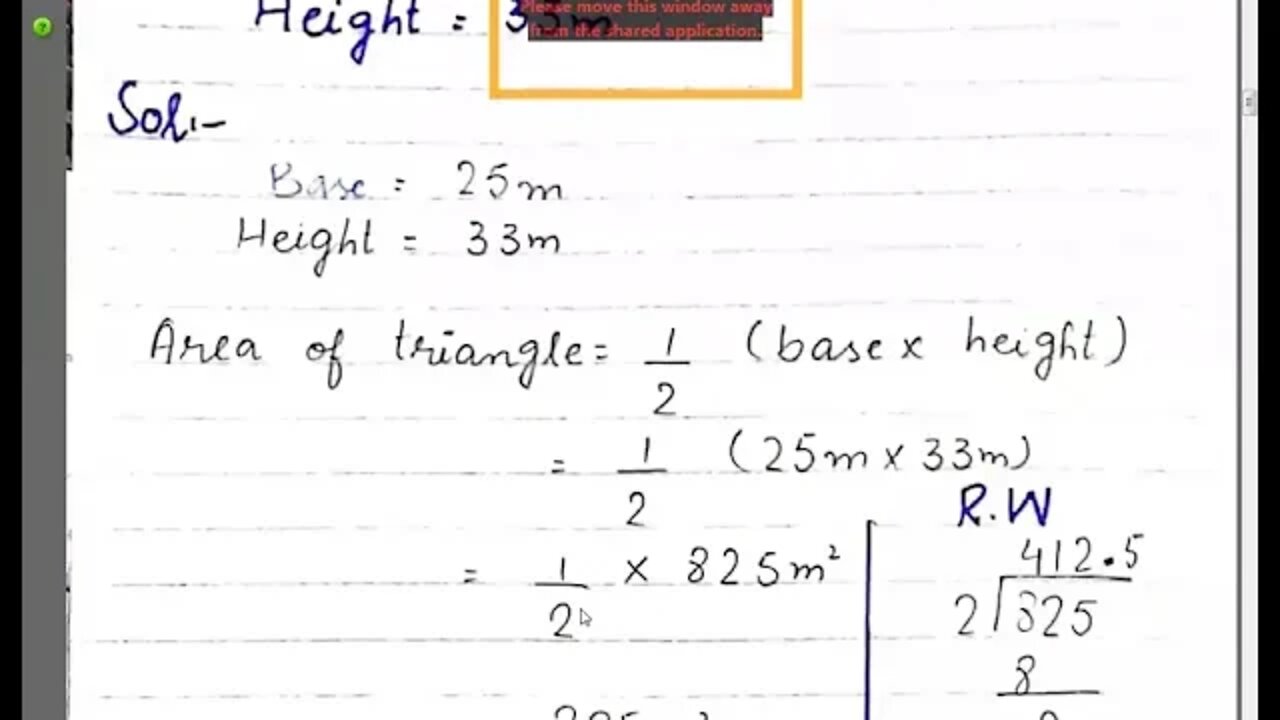 Height = 33m
Please move this window away
from the shared application.
Sol:-
Base = 25m
Height = 33m
Area of triangle = 1/2 (base x height)
= 1/2 (25m x 33m)
R.W
= 1/2 x 825m²
412.5
2)825
8